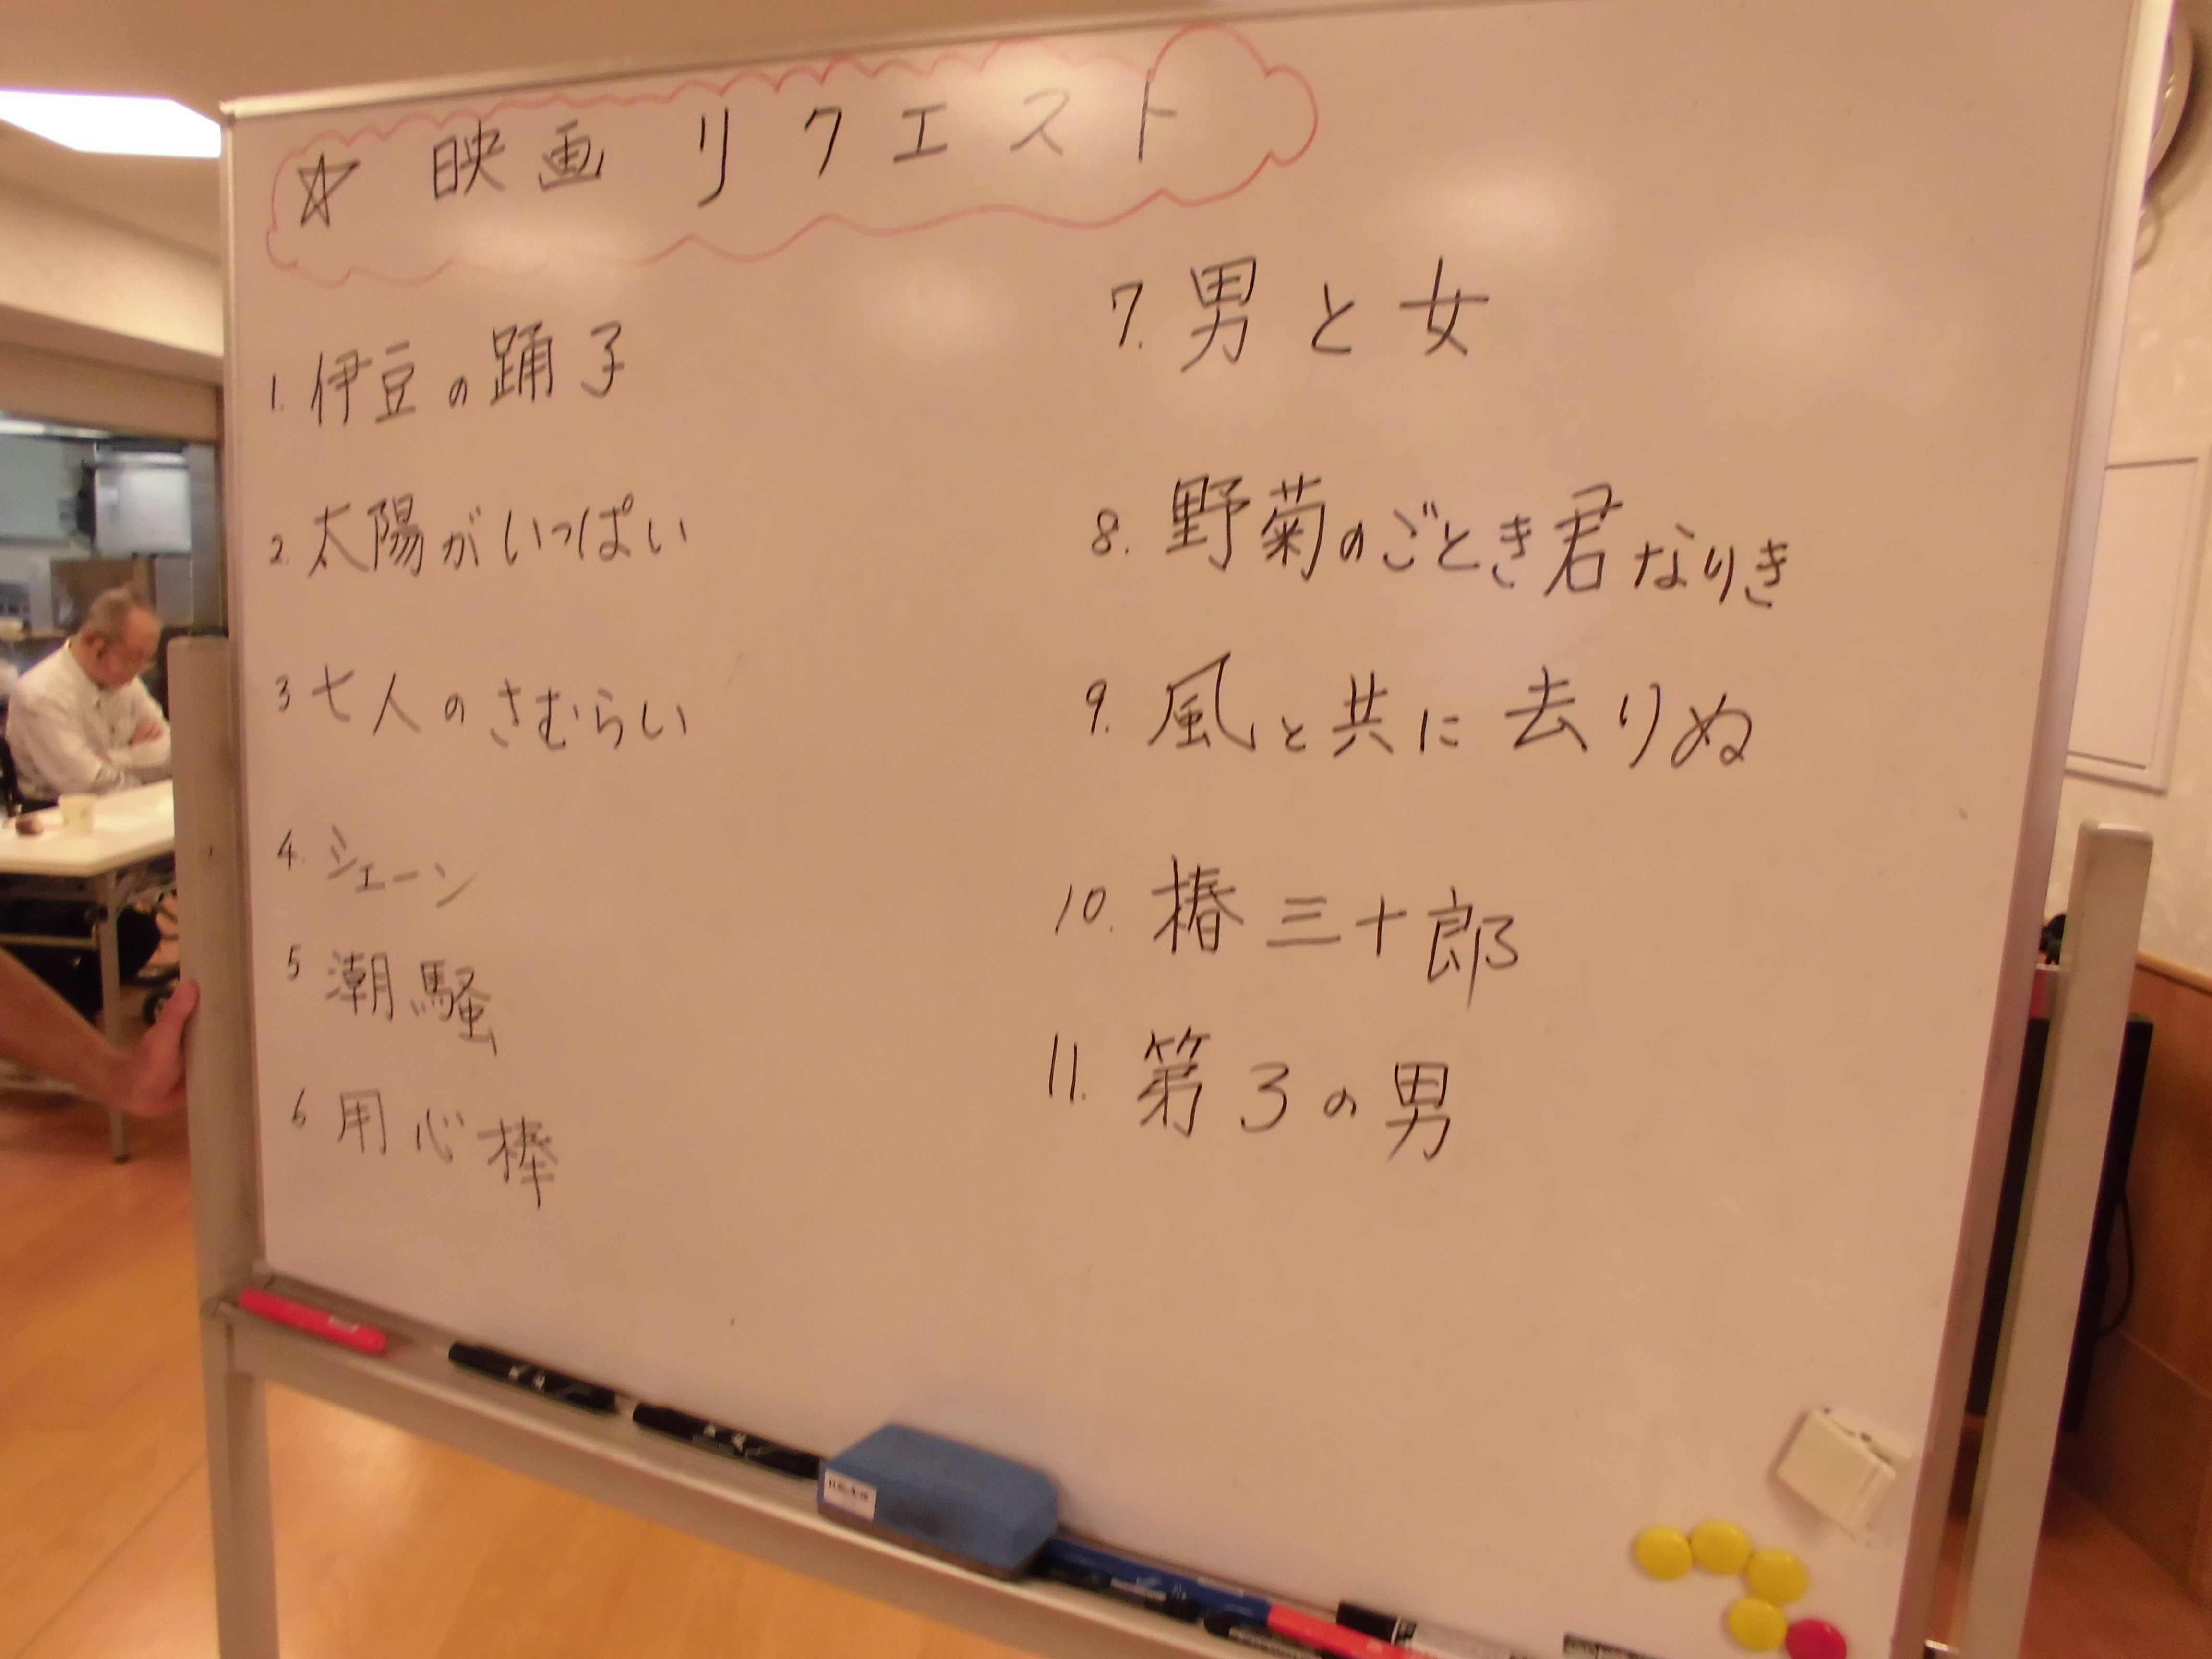 ☆ 映画リクエスト
1. 伊豆の踊子
2. 太陽がいっぱい
3 七人のさむらい
4. シェーン
5 潮騒
6 用心棒
7. 男と女
8. 野菊のごとき君なりき
9. 風と共に去りぬ
10.椿三十郎
11. 第3の男